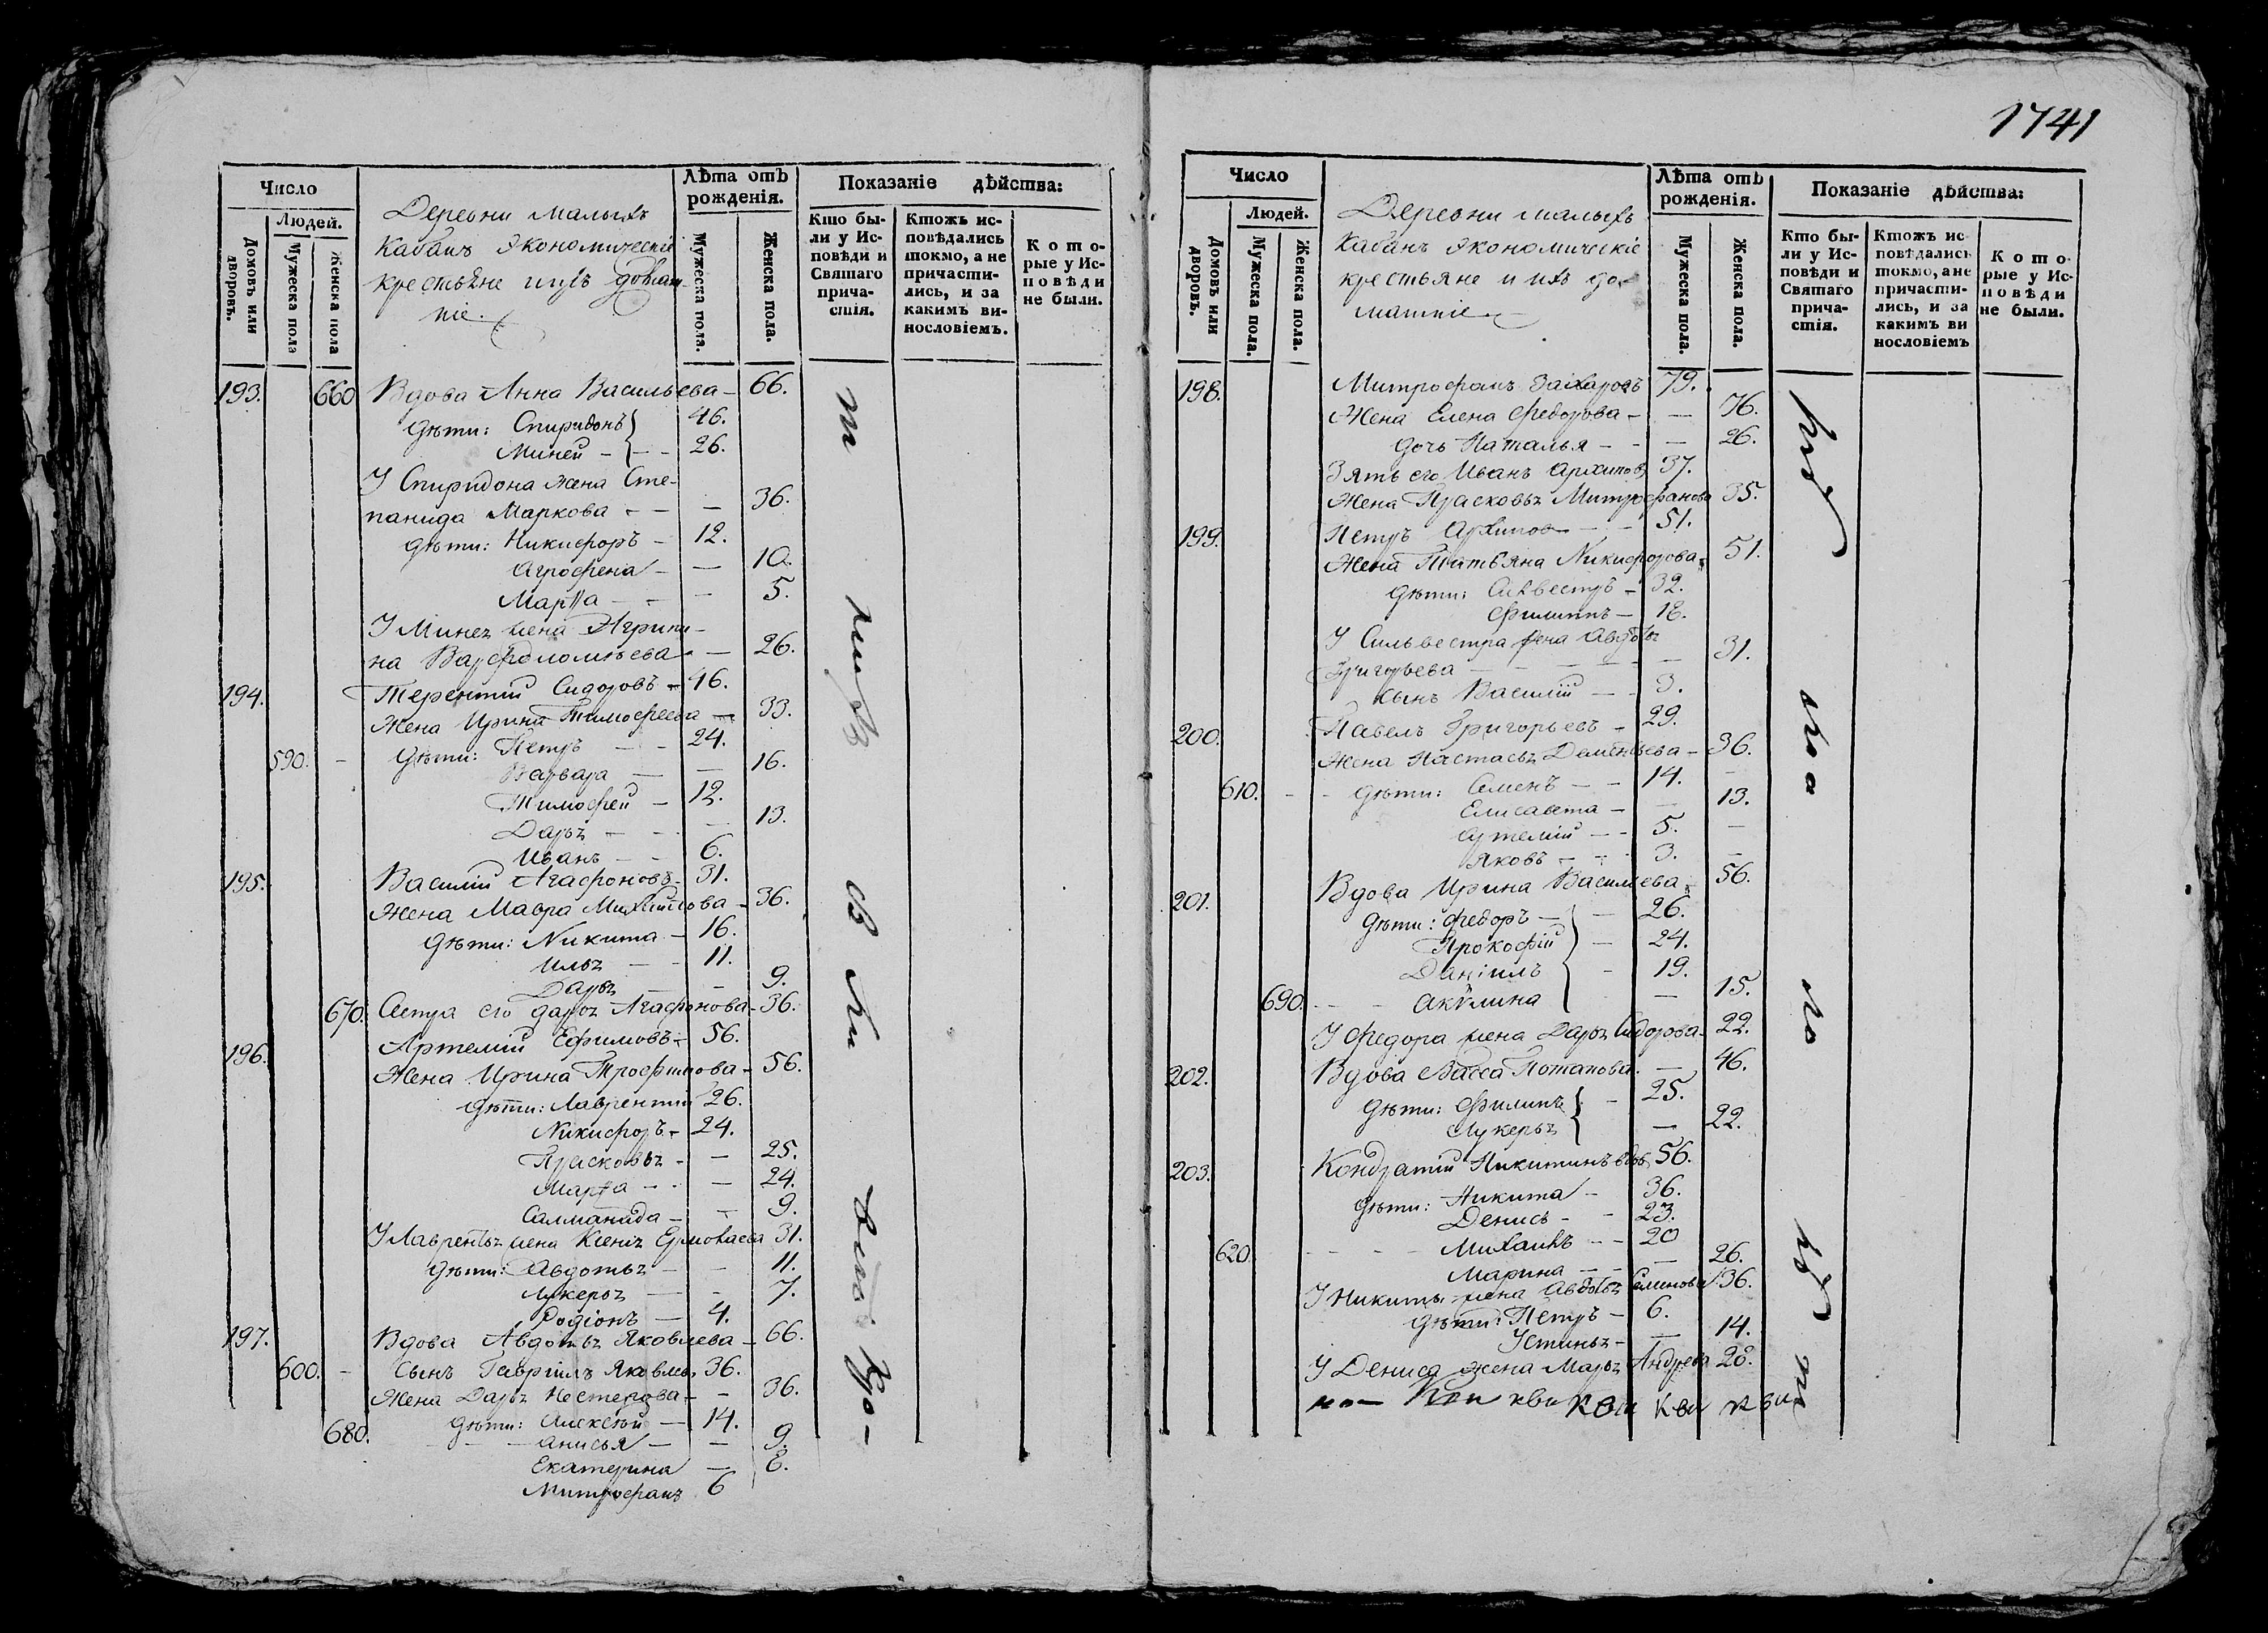 1741
Число
Людей.
Домовъ или дворовъ.
Мужеска пола
Женска пола
Деревни Малыхъ
Кабанъ экономическіе
крестьяне ихъ домаш-
ніе.
Лѣта отъ рожденія.
Мужеска пола.
Женска пола.
Показаніе дѣйства:
Кто бы-
ли у Ис-
повѣди и
Святаго
прича-
стія.
Ктожъ ис-
повѣдались
токмо, а не
причасти-
лись, и за
какимъ ви-
нословіемъ.
Кото-
рые у Ис-
повѣди
не были.
193. 660 Вдова Анна Васильева - 66.
Дѣти: Спиридонъ 46.
Миней - - 26.
У Спиридона жена Сте-
панида Маркова - - 36.
Дѣти: Никифоръ - 12.
Агрофена - - 10.
Марѳа - - 5.
У Минея жена Агрипи-
на Варфоломѣева - 26.
194. Терентий Сидоровъ - 46.
Жена Ирина Тимофеева - 33.
590. - Дѣти: Петръ - - 24.
Варвара - - 16.
Тимофей - 12.
Дарья - - 13.
Иванъ - - 6.
195. Василій Агафоновъ - 31.
Жена Мавра Михайлова - 36.
Дѣти: Никита - 16.
Илья - - 11.
Дарья - 9.
670. Сестра его Дарья Агафонова - 36.
196. Артемій Ефимовъ - 56.
Жена Ирина Трофимова - 56.
Дѣти: Лаврентий 26.
Никифоръ - 24.
Прасковья - - 25.
Марѳа - - 24.
Салманида - - 9.
У Лаврентья жена Ксенія Ермолаева 31.
Дѣти: Авдотья - - 11.
Лукерья - - 7.
Родіонъ - 4.
197. Вдова Авдотья Яковлева - 66.
600. - Сынъ Гавріилъ Яковлев. 36.
Жена Дарья Нестерова - - 36.
Дѣти: Алексѣй - 14.
680. - - - Анисья - - 9.
Екатерина - 8.
Митрофанъ 6
Число
Людей.
Домовъ или дворовъ.
Мужеска пола.
Женска пола.
Деревни Малыхъ
Кабанъ экономическіе
крестьяне и ихъ до-
машніе
Лѣта отъ рожденія.
Мужеска пола.
Женска пола.
Показаніе дѣйства:
Кто бы-
ли у Ис-
повѣди и
Святаго
прича-
стія.
Ктожъ ис-
повѣдались
токмо, а не
причасти-
лись, и за
какимъ ви
нословіемъ
Кото-
рые у Ис-
повѣди
не были.
198. Митрофанъ Захаровъ 79.
Жена Елена Федорова - - 76.
Дочь Наталья - - - 26.
Зять его Иванъ Архиповъ 37.
Жена Прасковья Митрофанова 35.
199. Петръ Архипов - - 51.
Жена Татьяна Никифорова - 51.
Дѣти: Силвестръ - 32.
Филиппъ - 18.
У Сильвестра жена Авдотья
Григорьева - - - - 31.
Сынъ Василій - - 3.
200. Павелъ Григорьевъ - 29.
Жена Настасья Дементьева - 36.
610. - - Дѣти: Семенъ - - 14.
Елисавета - - 13.
Артемій - - 5.
Яковъ - - 3.
201. Вдова Ирина Васильева - 56.
Дѣти: Федоръ - - 26.
Прокофій - 24.
Даніилъ - 19.
690. - - Акулина - 15.
У Федора жена Дарья Сидорова - 22.
202. Вдова Васса Потапова. - 46.
Дѣти: Филипъ - 25.
Лукерья - 22.
203. Кондратій Никитинъ вдов. 56.
Дѣти: Никита - 36.
Денисъ - - 23.
620. - - - Михаилъ - - 20
Марина - - 26.
У Никиты жена Авдотья Семенова 36.
Дѣти: Петръ - 6.
Устинья - - 14.
У Дениса жена Марья Андреева 28.